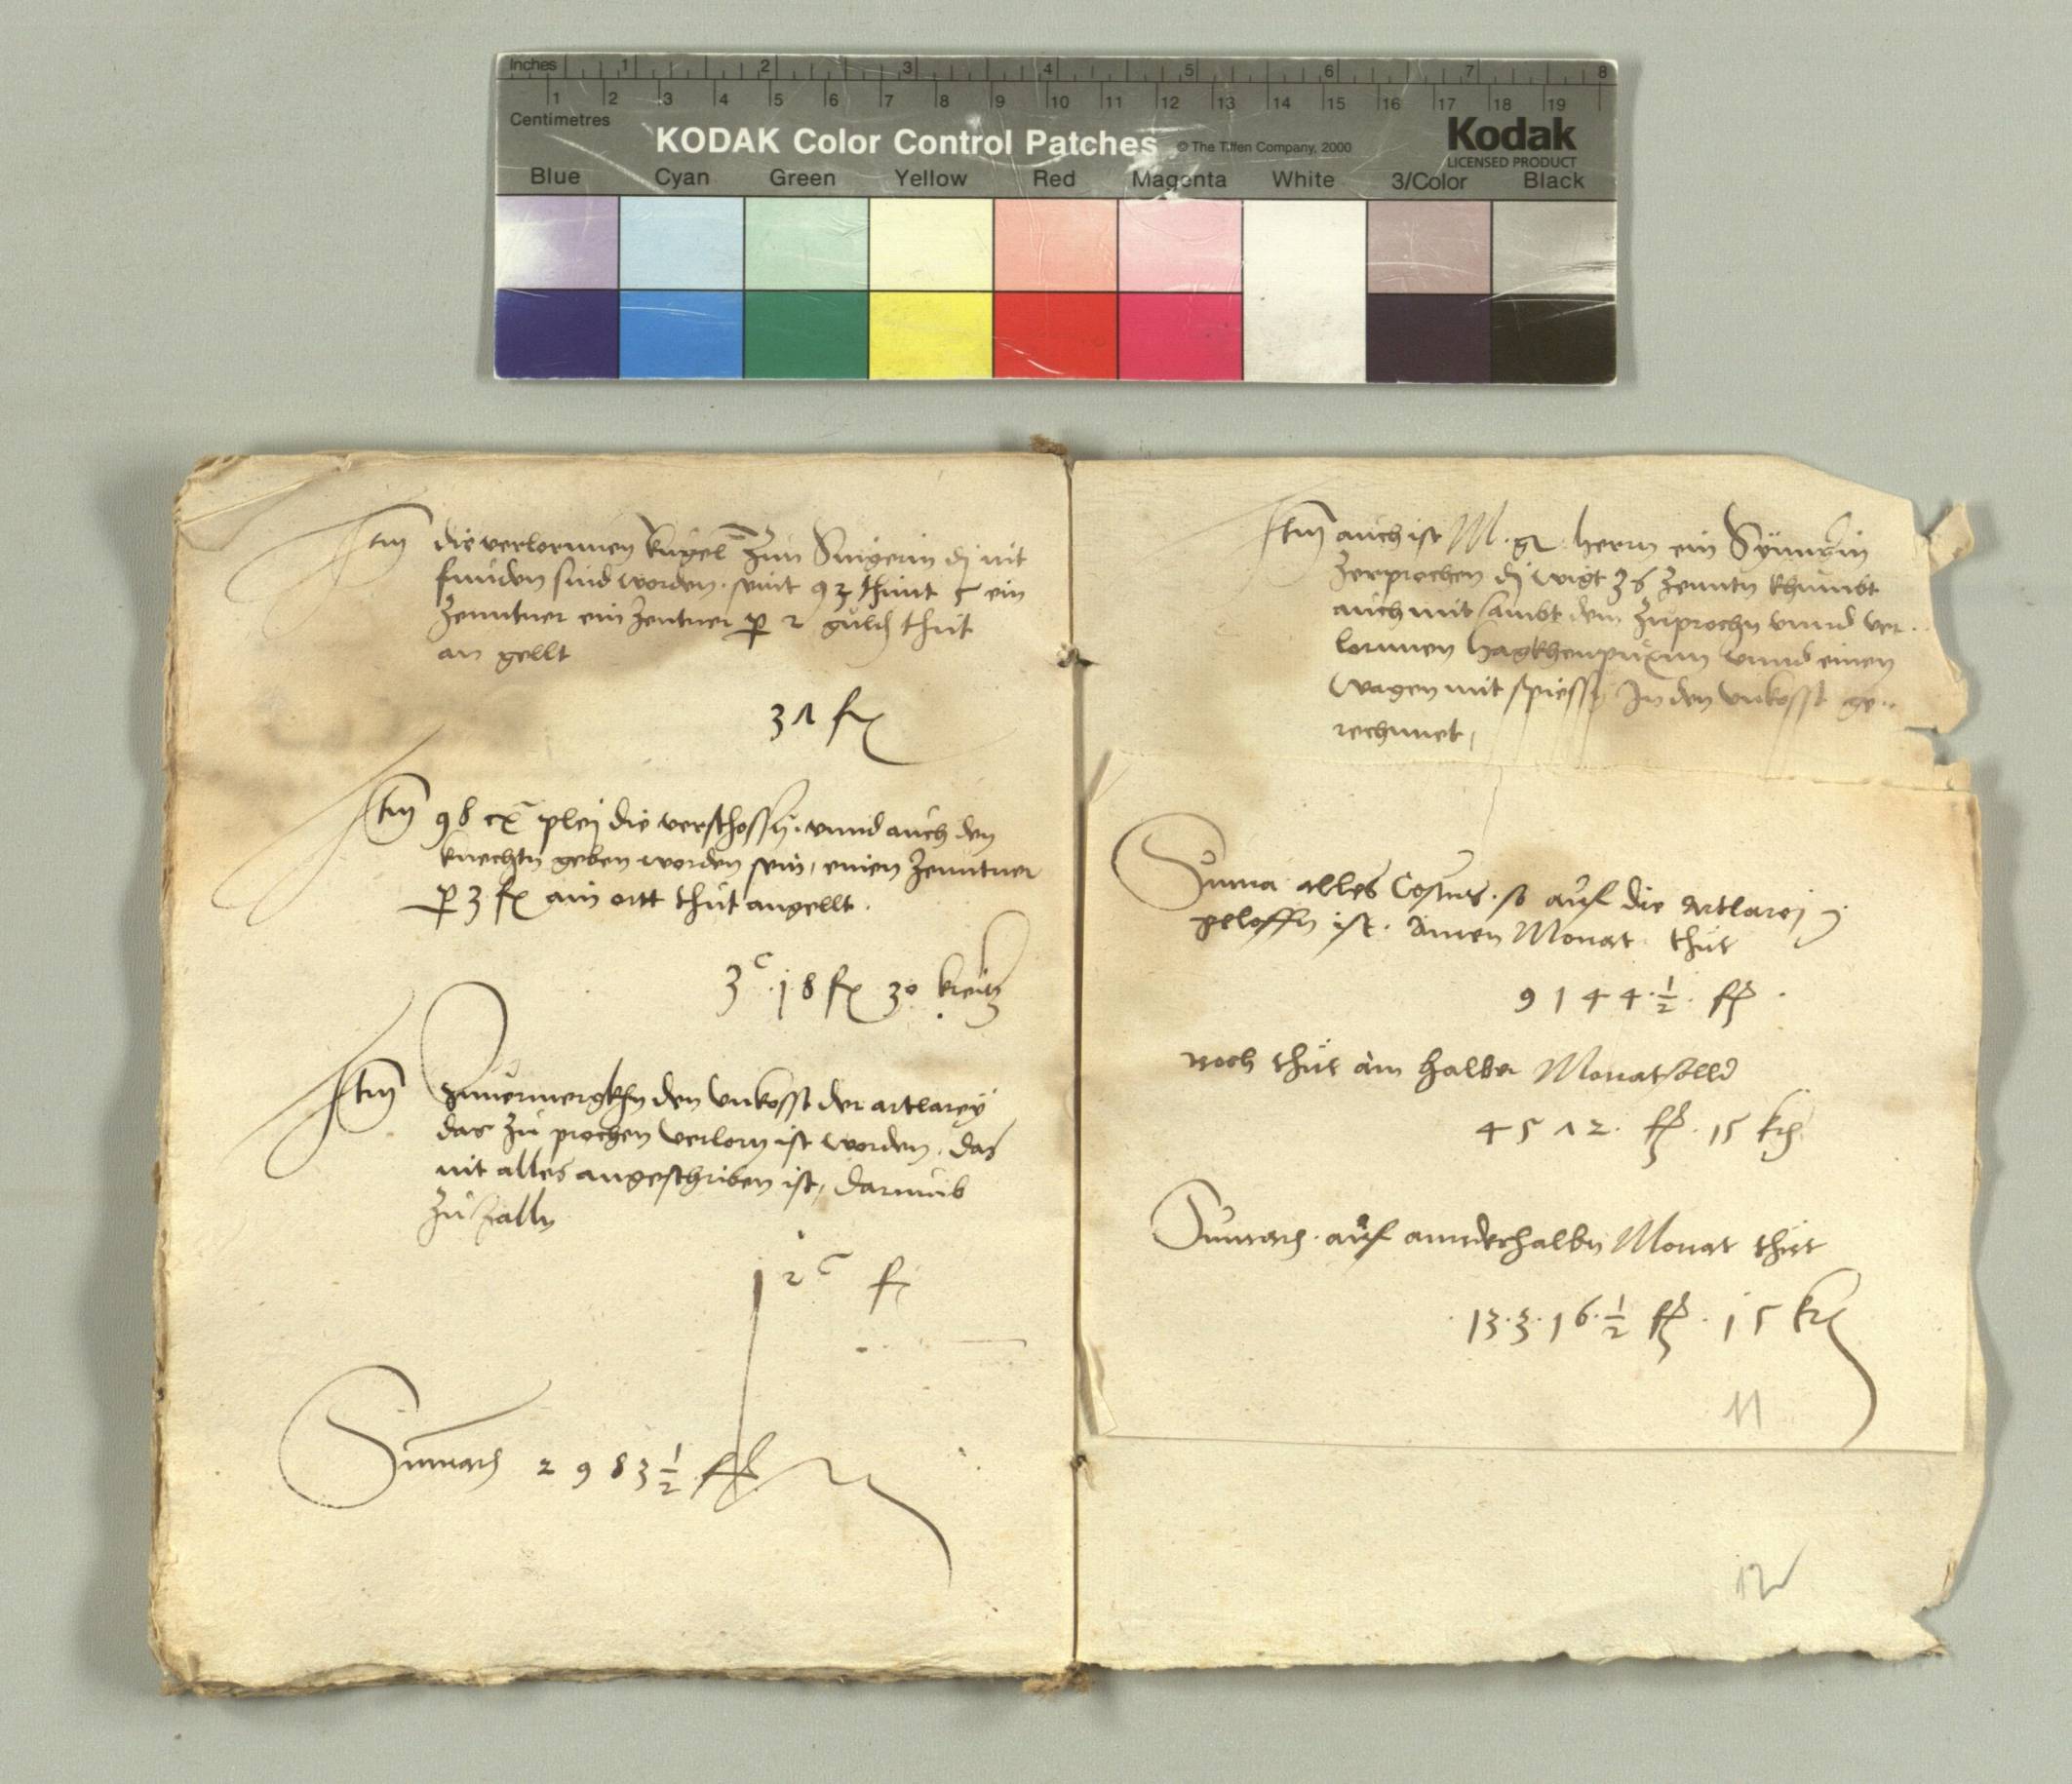 Inches 1 2 3 4 5 6 7 8
1 2 3 4 5 6 7 8 9 10 11 12 13 14 15 16 17 18 19
Centimetres
KODAK Color Control Patches © The Tiffen Company, 2000 Kodak
LICENSED PRODUCT
Blue Cyan Green Yellow Red Magenta White 3/Color Black
Itm die verlornnen kugel zun Singerin dj nit
funden sind worden. seint 93 thuut 5 ein
Zenntner ein Zentner p 2 guld thut
an gellt
31 fl
Itm 98 ct plej die verschossn. vnnd auch den
knechtn geben worden sein, einen Zenntner
p 3 fl ain ortt thut angellt.
3c 18 fl 30 kreutz
Itm Zuuermergkhn den vnkosst der artlarey
das zu prochen verlorn ist worden. das
nit alles angeschriben ist, darumb
zu zalln
12c fl
Summarum 2983 1/2 fl
Itm auch ist M. g. herrn ein
zerprochen dj wigt 36 Zenntn khumbt
auch mit sambt den zuprochn vnnd ver..
lornnen hagkhenpuxnn vnnd einen
wagen mit spiessn In den vnkosst ge..
rechnnet,
Suma alles Costns. so auf die Artlarej
geloffn ist. ainen Monat. thut
9144 1/2 fl
noch thut ain halber Monatsolld
4512. fl. 15 kr
Summarum. auf annderhalbn Monat thut
13.3.16. 1/2 fl. 15 kr
11
12